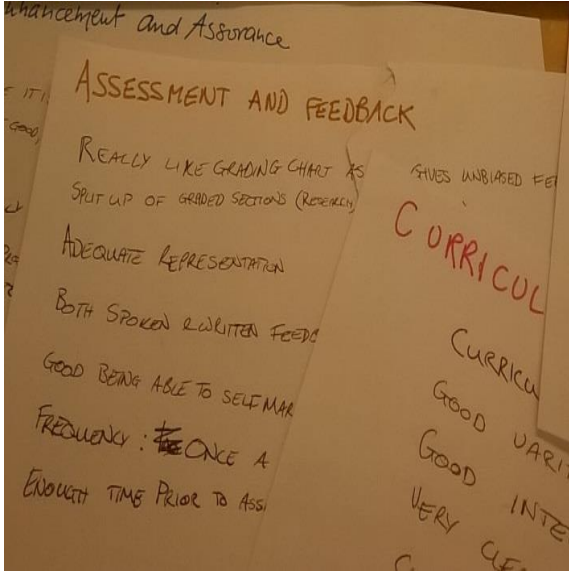 and Assurance
ASSESSMENT AND FEEDBACK
REALLY LIKE GRADING CHART AS GIVES UNBIASED FE
SPLIT UP OF GRADED SECTIONS (RESEARCH,
ADEQUATE REPRESENTATION
BOTH SPOKEN & WRITTEN FEEDB
GOOD BEING ABLE TO SELF MAR
FREQUENCY: ONCE A
ENOUGH TIME PRIOR TO ASS
CURRICUL
CURRICU
GOOD VARI
GOOD INTE
VERY CLE